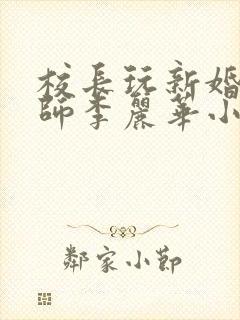 校長玩新婚
師李麗華小
鄰家小節